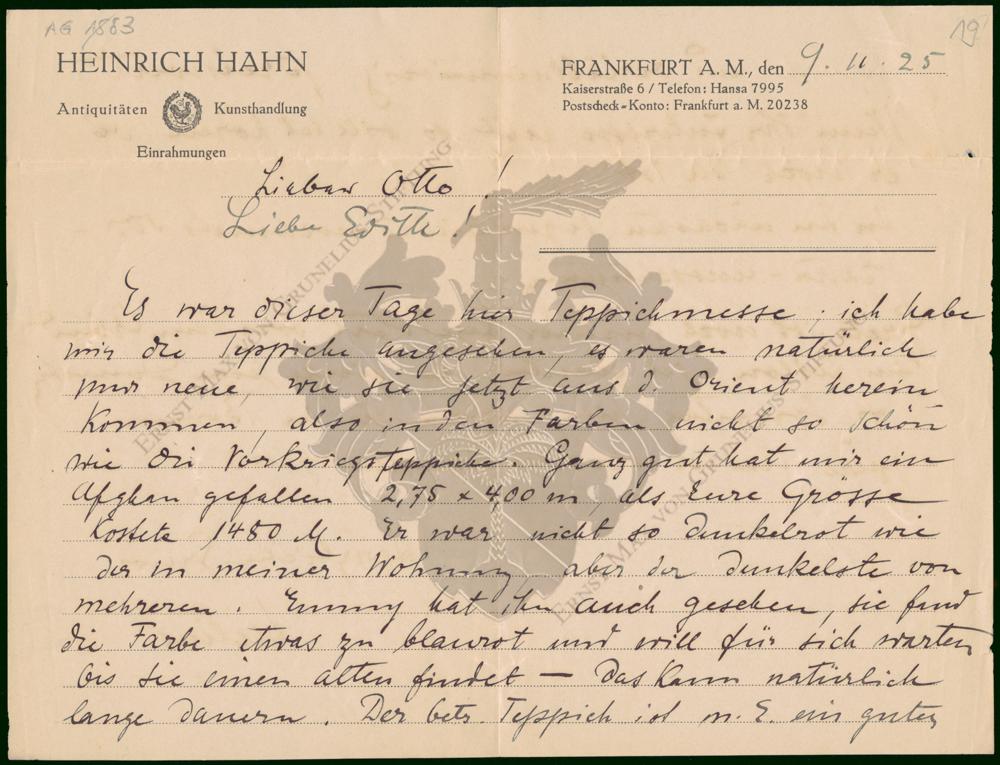 AG 1883
19
HEINRICH HAHN
Antiquitäten Kunsthandlung
Einrahmungen
FRANKFURT A. M., den 9. 11. 25
Kaiserstraße 6 / Telefon: Hansa 7995
Postscheck-Konto: Frankfurt a. M. 20238
Lieber Otto!
Liebe Edith!
Es war dieser Tage hier Teppichmesse; ich habe
mir die Teppiche angesehen, es waren natürlich
nur neue, wie sie jetzt aus d. Orient herein
kommen, also in den Farben nicht so schön
wie die Vorkriegsteppiche. Ganz gut hat mir ein
Afghan gefallen 2,75 x 4,00 m, als Eure Grösse
kostete 1480 M. Er war nicht so dunkelrot wie
der in meiner Wohnung aber der dunkelste von
mehreren. Emmy hat ihn auch gesehen, sie fand
die Farbe etwas zu blaurot und will für sich warten
bis sie einen alten findet — Das kann natürlich
lange dauern. Der betr. Teppich ist m. E. ein guter
ERNST MAX VON GRUNELIUS-STIFTUNG
ERNST MAX VON GRUNELIUS-STIFTUNG